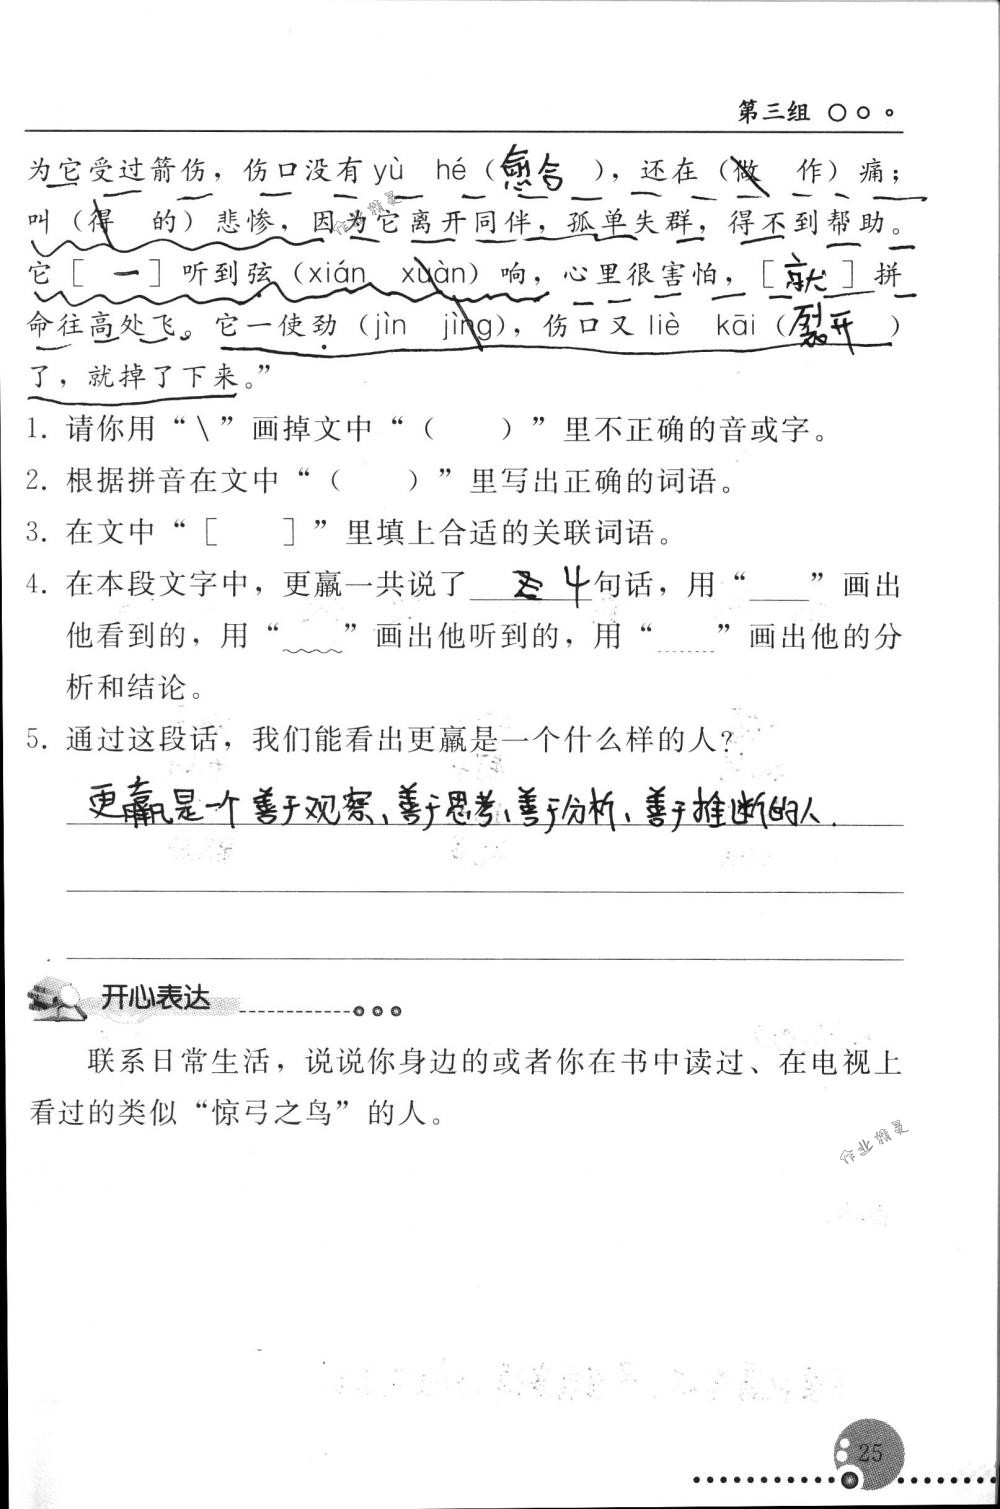 第三组
为它受过箭伤，伤口没有 yù hé（愈合），还在（做 作）痛；
叫（得 的）悲惨，因为它离开同伴，孤单失群，得不到帮助。
它［一］听到弦（xián xuàn）响，心里很害怕，［就］拼
命往高处飞。它一使劲（jìn jìng），伤口又 liè kāi（裂开）
了，就掉了下来。”
1. 请你用“\”画掉文中“（　　）”里不正确的音或字。
2. 根据拼音在文中“（　　）”里写出正确的词语。
3. 在文中“［　　］”里填上合适的关联词语。
4. 在本段文字中，更羸一共说了 4 句话，用“____”画出
他看到的，用“﹏﹏”画出他听到的，用“……”画出他的分
析和结论。
5. 通过这段话，我们能看出更羸是一个什么样的人？
更羸是一个善于观察、善于思考、善于分析、善于推断的人.
开心表达
联系日常生活，说说你身边的或者你在书中读过、在电视上
看过的类似“惊弓之鸟”的人。
作业精灵
25